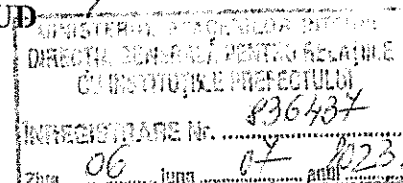 UD
MINISTERUL AFACERILOR INTERNE
DIRECȚIA GENERALĂ PENTRU RELAȚIILE
CU INSTITUȚIILE PREFECTULUI
836437
INREGISTRARE Nr. ....................
Ziua 06 luna 07 anul 2023